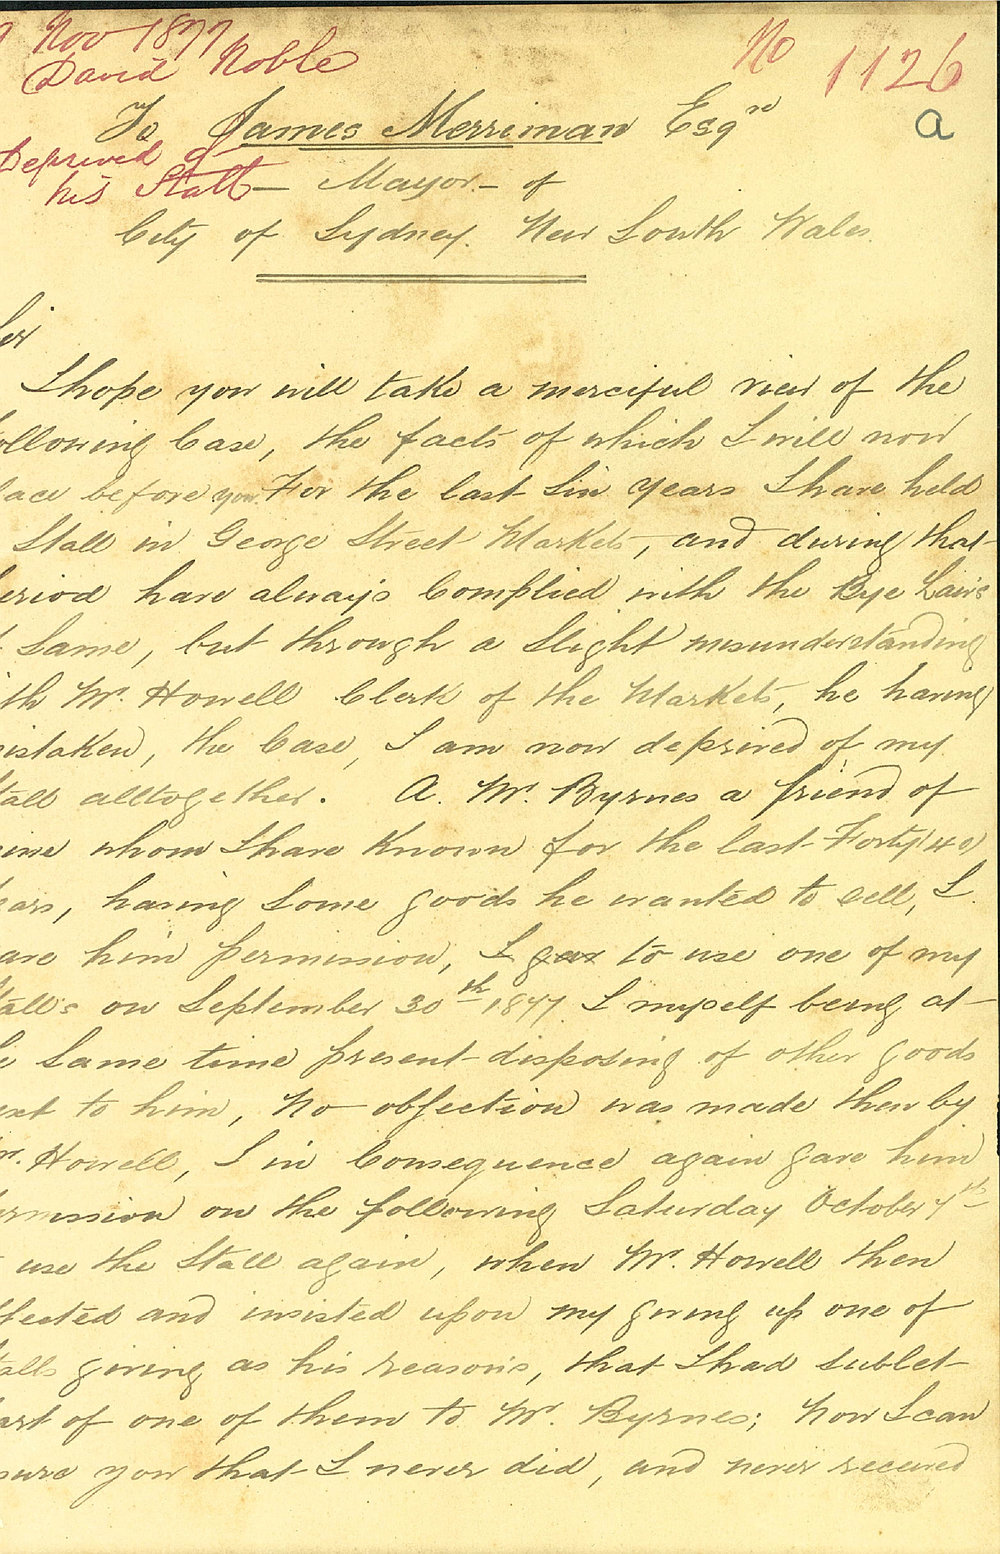 7 Nov 1877
David Noble
No 1126
a
To James Merriman Esqre
Deprived of
his Stall
Mayor - of
City of Sydney. New South Wales.
Sir
I hope you will take a merciful view of the
ollowing Case, the facts of which I will now
lace before you. For the last Six years I have held
Stall in George Street Markets, and during that
eriod have always Complied with the Bye Laws
Same, but through a Slight misunderstanding
ith Mr. Howell Clerk of the Markets, he having
istaken, the Case, I am now deprived of my
tall alltogether. A. Mr. Byrnes a friend of
ine whom I have Known for the last Forty (40)
ears, having Some goods he wanted to Sell, I
ave him permission, I gav to use one of my
talls on September 30th 1877 I myself being at
e Same time present disposing of other goods
ext to him, No objection was made then by
r. Howell, I in Consequence again gave him
ermission on the following Saturday October 7th
use the Stall again, when Mr. Howell then
bjected and insisted upon my giving up one of
talls giving as his reasons, that I had Sublet
art of one of them to Mr. Byrnes; Now I can
sure you that I never did, and never received